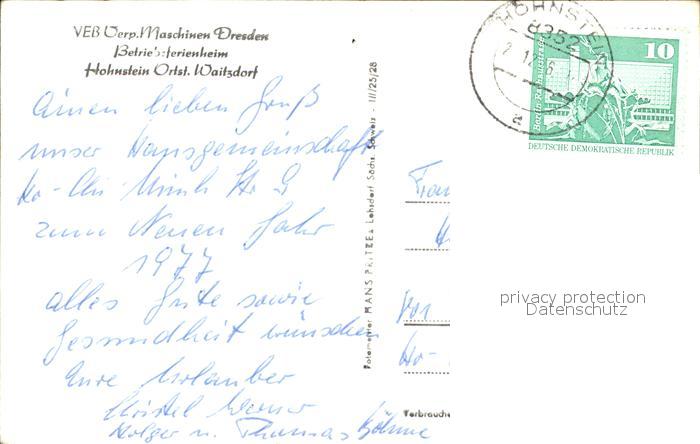 VEB Verp.Maschinen Dresden
Betriebsferienheim
Hohnstein Ortst. Waitzdorf
Einen lieben Gruß
unser Hausgemeinschaft
Ho-Chi Minh Str 9
zum Neuen Jahr
1977
alles Gute sowie
Gesundheit wünschen
Eure Urlauber
Christel Werner
Holger u. Thomas Böhme
Fotomeister HANS PRITZEL Lohsdorf Sächs. Schweiz III/25/28
HOHNSTEIN
8352
a
10
Berlin Rathausstraße
DEUTSCHE DEMOKRATISCHE REPUBLIK
privacy protection
Datenschutz
Ho-
Verbrauche